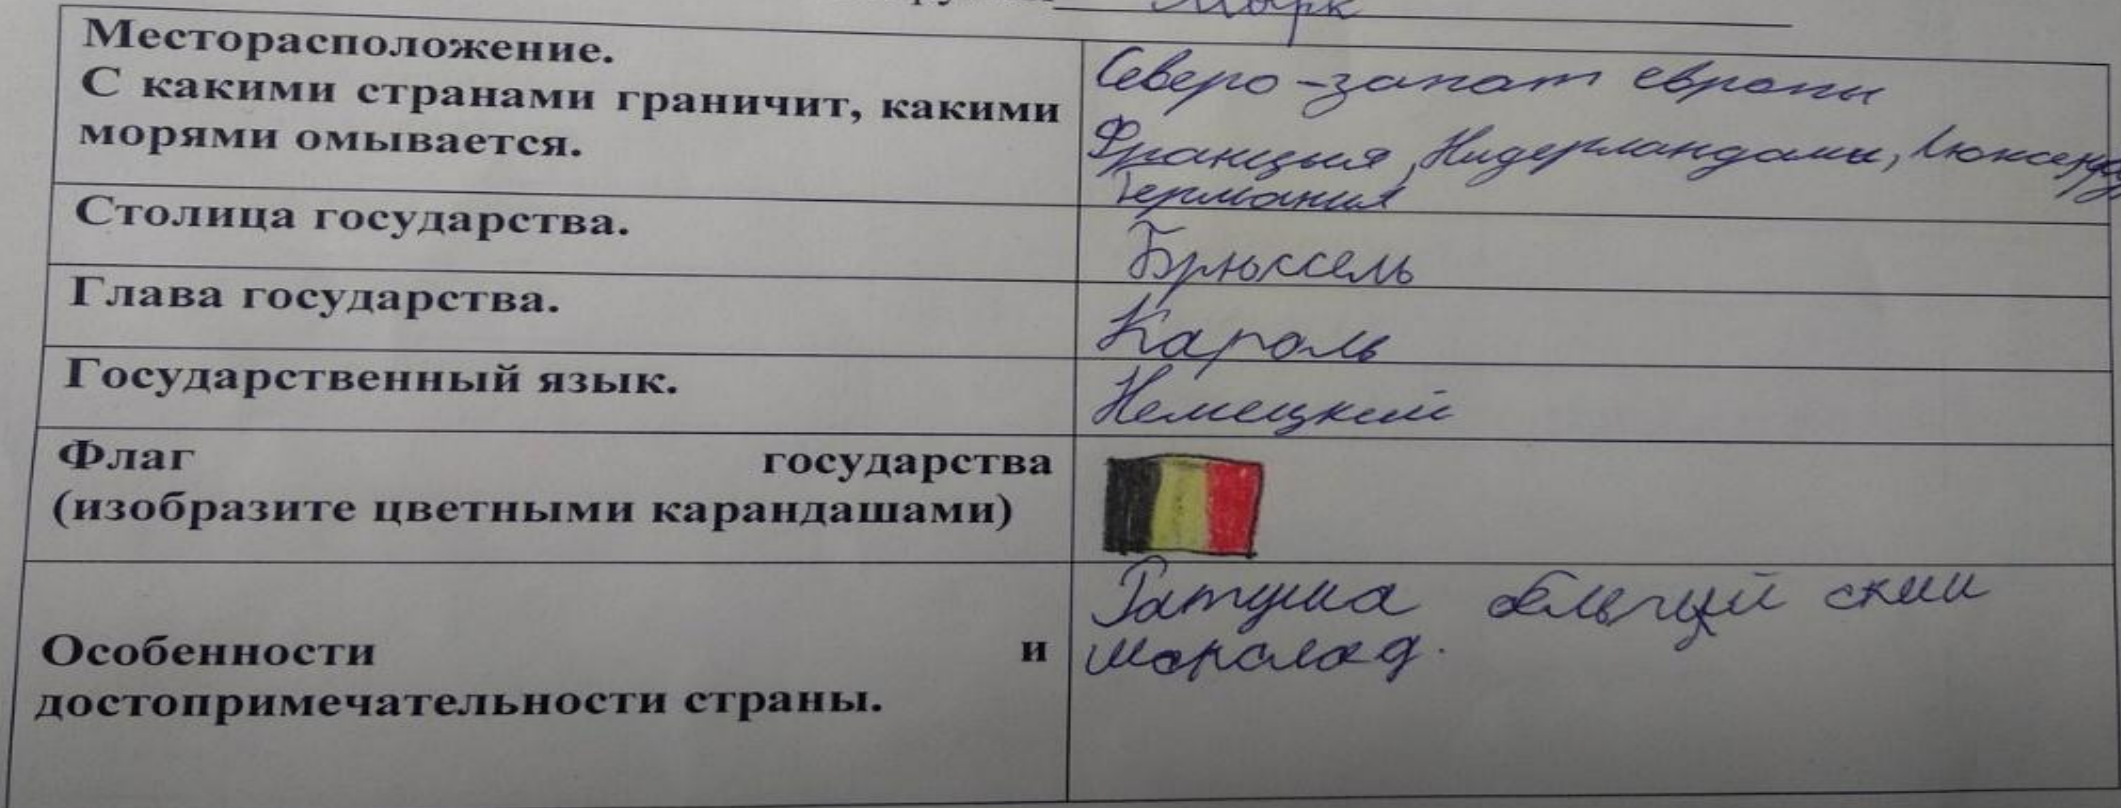 Марк
Месторасположение.
С какими странами граничит, какими
морями омывается.
Северо-запат европы
Францыя, Нидерландамы,
Германия
Столица государства.
Брюссель
Глава государства.
Кароль
Государственный язык.
Немецкий
Флаг государства
(изобразите цветными карандашами)
Особенности и
достопримечательности страны.
Ратуша